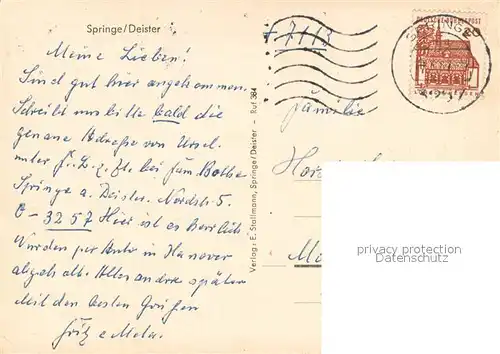 Springe/Deister
Meine Lieben!
Sind gut hier angekommen.
Schreibt uns bitte bald die
genaue Adresse von Ursel.
unter F. L. z. Zt. bei
Springe a. Deister. Nordstr. 5
3257 Hier ist es herrlich
Wurden per Auto in Hanover
abgeholt. Alles andre später
Mit den besten Grüßen
Fritz e Meta.
Verlag: E. Stallmann, Springe/Deister - Ruf 384
+ 7113
DEUTSCHE BUNDESPOST
20
SPRINGE
Familie
privacy protection
Datenschutz